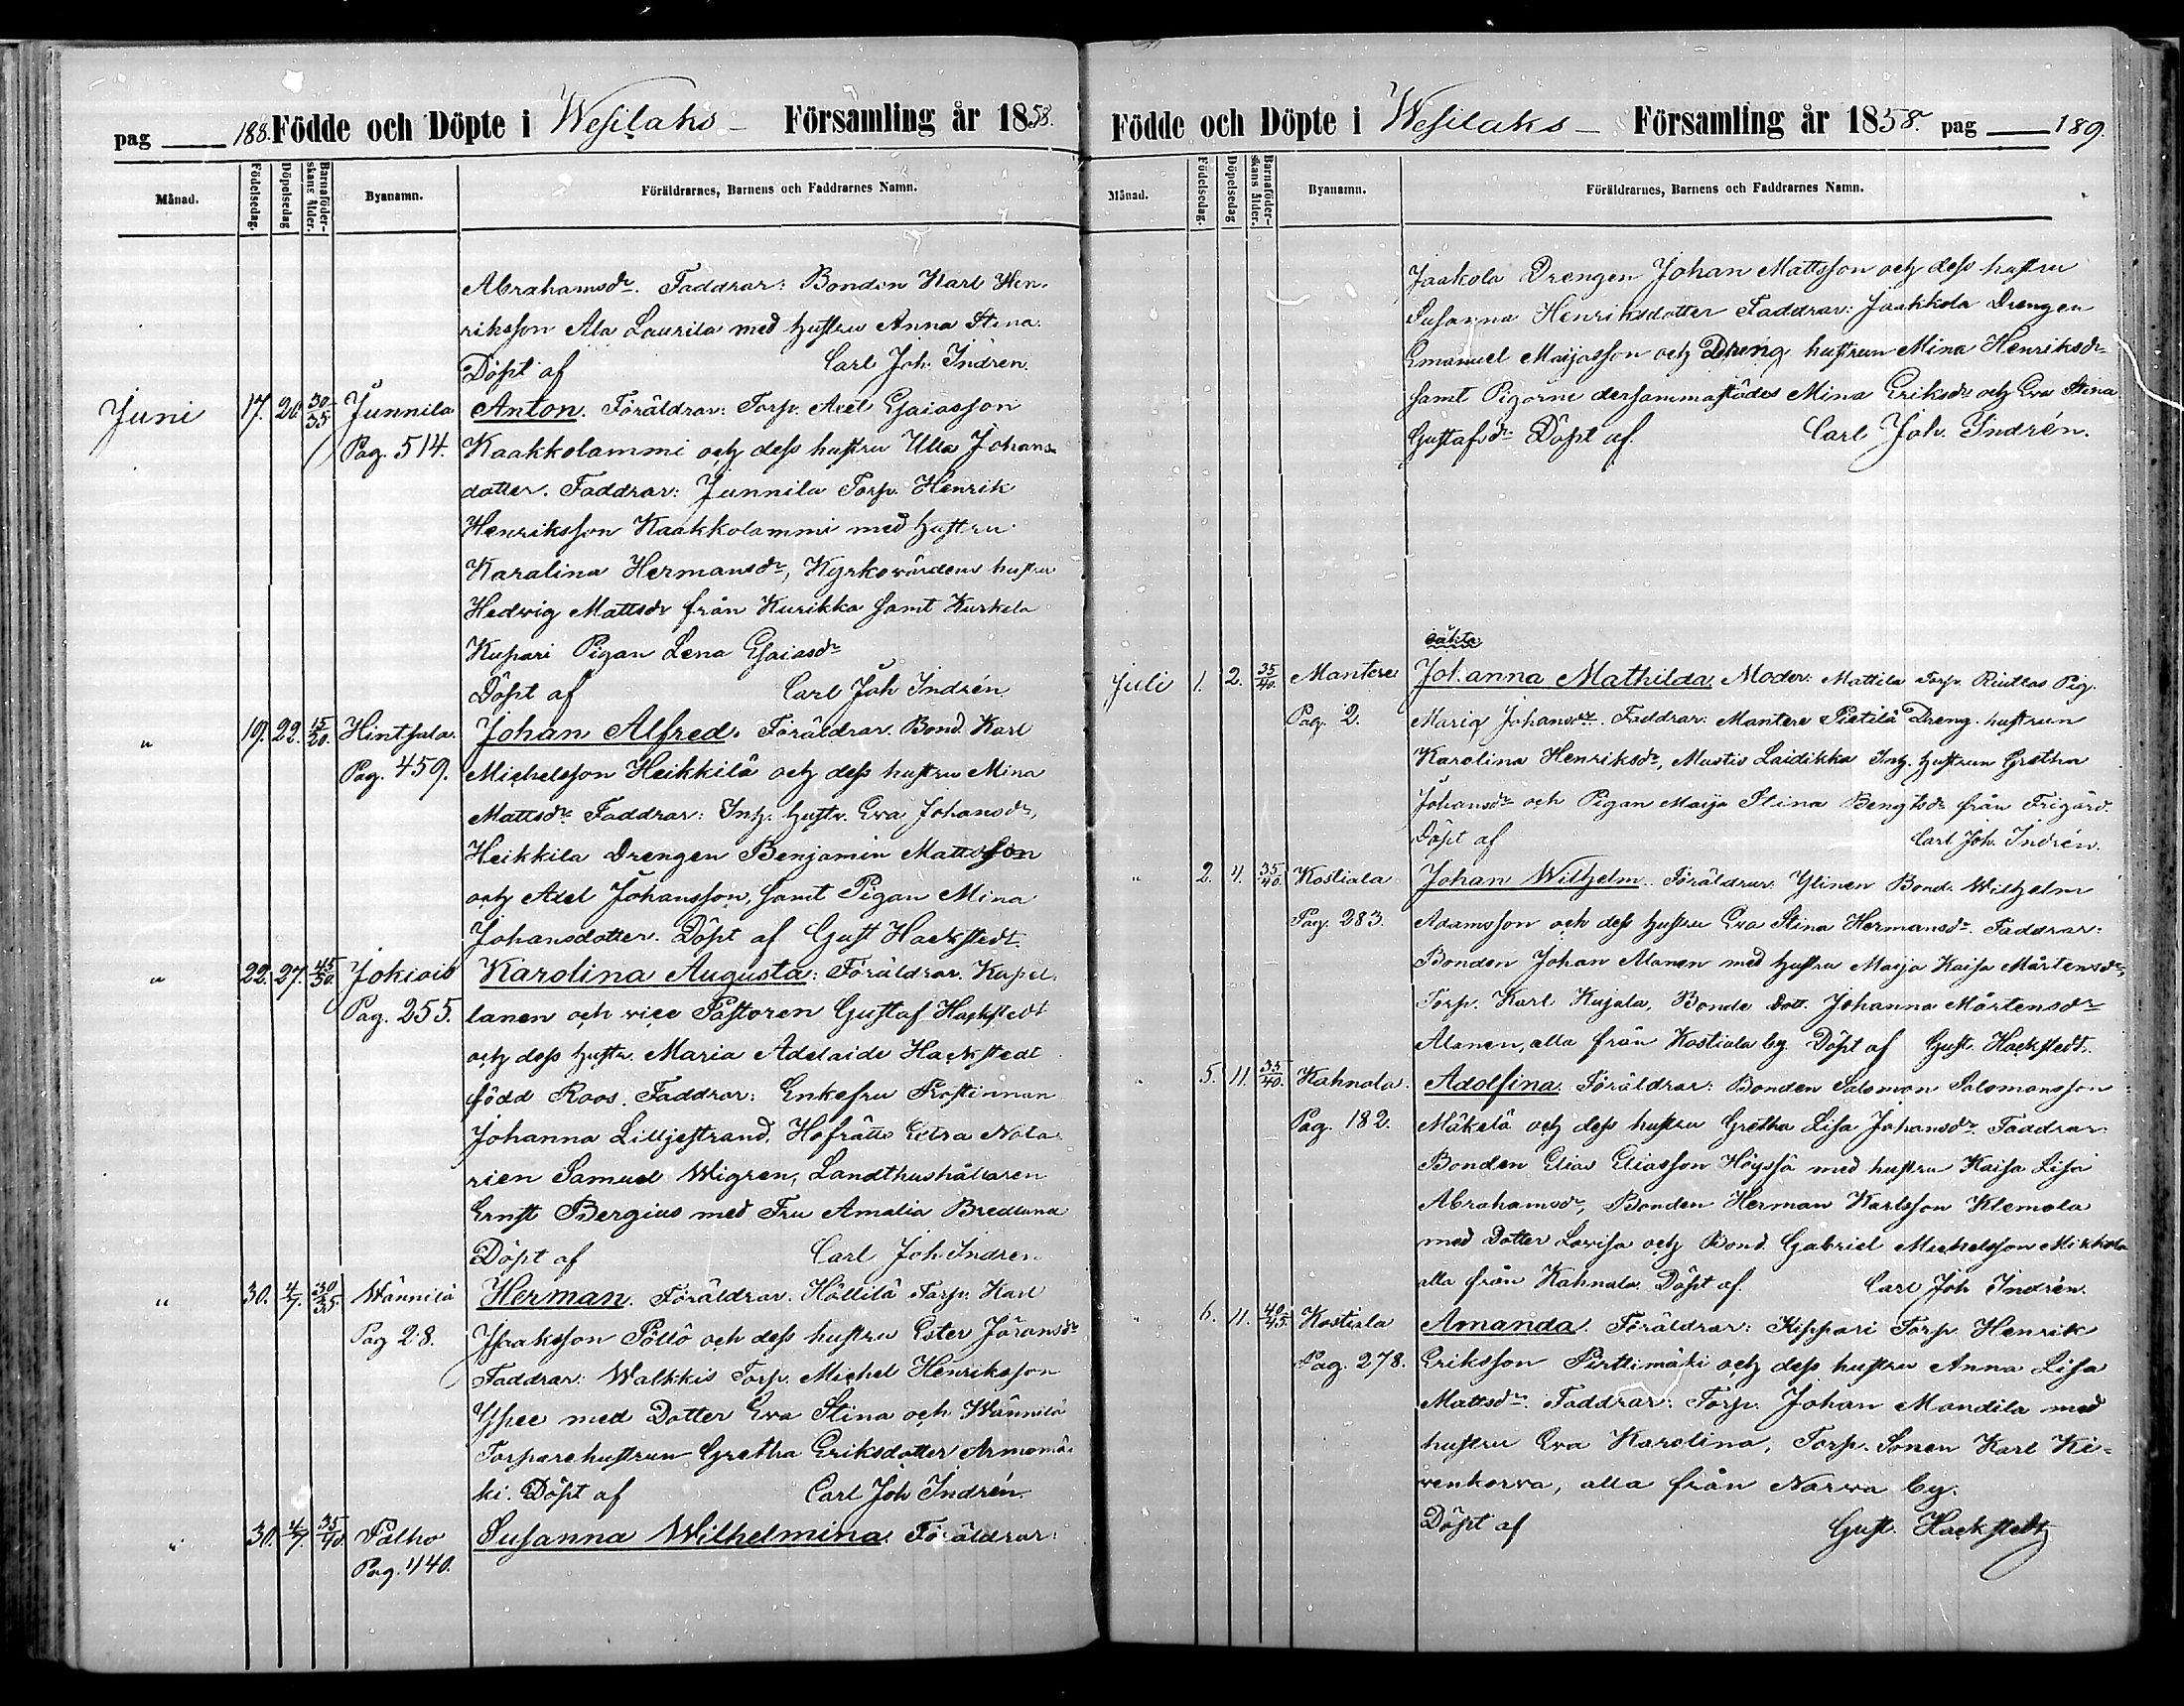 pag 188. Födde och Döpte i Wesilaks Församling år 1858.
Månad. Födelsedag. Döpelsedag Barnaföderskans ålder. Byanamn. Föräldrarnes, Barnens och Faddrarnes Namn.
Abrahamsdr. Faddrar: Bonden Karl Hen-
riksson Ala Laurila med hustru Anna Stina.
Döpt af Carl Joh. Indrén.
Juni 17. 20 30/35 Junnila Anton. Föräldrar: Torp. Axel Esaiasson
Pag. 514. Kaakkolammi och dess hustru Ulla Johans-
dotter. Faddrar: Junnila Torp. Henrik
Henriksson Kaakkolammi med hustru
Karalina Hermansdr, Kyrkovärdens hustru
Hedvig Mattsdr från Kurikka samt Kurkela
Kupari Pigan Lena Esaiasdr
Döpt af Carl Joh Indrén
" 19. 22. 15/20. Hintsala. Johan Alfred. Föräldrar. Bond. Karl
Pag. 459. Michelsson Heikkilä och dess hustru Mina
Mattsdr. Faddrar: Inh. hustr. Eva Johansdr,
Heikkila Drengen Benjamin Mattsson
och Axel Johansson, samt Pigan Mina
Johansdotter. Döpt af Gust Hackstedt.
" 22. 27. 45/50. Jokiois Karolina Augusta: Föräldrar. Kapel-
Pag. 255. lanen och vice Pastoren Gustaf Hackstedt
och dess hustr. Maria Adelaide Hackstedt
född Roos. Faddrar: Enkefru Prostinnan
Johanna Lilljestrand, Hofrätts Extra Nota-
rien Samuel Wigren, Landthushållaren
Ernst Bergius med Fru Amalia
Döpt af Carl Joh. Indren
" 30. 4/7. 30/35. Wännilä Herman. Föräldrar. Höllilä Torp. Karl
Pag 28. Isaaksson Pöllö och dess hustru Ester Jöransdr
Faddrar: Walkkis Torp. Michel Henriksson
med Dotter Eva Stina och Wännilä
Torparehustrun Gretha Eriksdotter Armomä-
ki. Döpt af Carl Joh Indrén.
" 30. 4/7. 35/40. Palho Susanna Wilhelmina. Föräldrar:
Pag. 440.
Födde och Döpte i Wesilaks Församling år 1858. pag 189.
Månad. Födelsedag. Döpelsedag Barnaföderskans ålder. Byanamn. Föräldrarnes, Barnens och Faddrarnes Namn.
Jaakola Drengen Johan Mattsson och dess hustru
Susanna Henriksdotter Faddrar: Jaakkola Drengen
Emanuel Maijasson och Dreng hustrun Mina Henriksdr
samt Pigorne dersammastädes Mina Eriksdr och Eva Stina
Gustafsdr Döpt af. Carl Joh. Indrén.
oäkta
Juli 1. 2. 35/40. Mantere Johanna Mathilda, Moder: Mattila Torp. Pig.
Pag. 2. Maria Johansdr. Faddrar: Mantere Pietilä Dreng. hustrun
Karolina Henriksdr, Mustis Laidikka Inh. hustrun Gretha
Johansdr och Pigan Maija Stina Bengtsdr från Frigård.
Döpt af Carl Joh. Indrén.
" 2. 4. 35/40. Kostiala Johan Wilhelm. Föräldrar: Ylinen Bond. Wilhelm
Pag. 283. Adamsson och dess hustru Eva Stina Hermansdr. Faddrar:
Bonden Johan Alanen med hustru Maija Kaisa Mårtensdr,
Torp. Karl Kujala, Bonde dott. Johanna Mårtensdr
Alanen, alla från Kostiala by. Döpt af Gust. Hackstedt.
" 5. 11. 35/40. Kahnala. Adolfina. Föräldrar: Bonden Salomon Salomonsson
Pag. 182. Mäkelä och dess hustru Gretha Lisa Johansdr. Faddrar:
Bonden Elias Eliasson Höyssä med hustru Kaisa Lisa
Abrahamsdr, Bonden Herman Karlsson Klemola
med Dotter Lovisa och Bond. Gabriel Michelsson Mikkola
alla från Kahnala. Döpt af. Carl Joh Indrén.
" 6. 11. 40/45. Kostiala Amanda. Föräldrar: Kippari Torp. Henrik
Pag. 278. Eriksson Pirttimäki och dess hustru Anna Lisa
Mattsdr. Faddrar: Torp. Johan Mandila med
hustru Eva Karolina, Torp. Sonen Karl Ki-
venkorva, alla från Narva by.
Döpt af Gust. Hackstedt